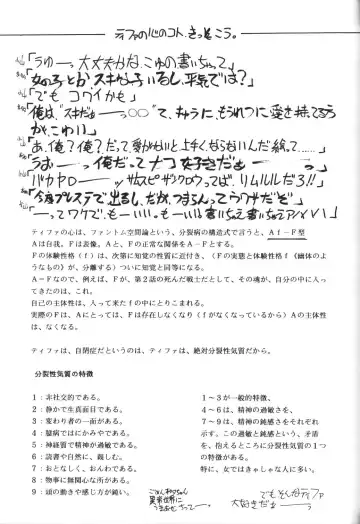 ティファの心のコト、きっとこう。
「うゅーっ大丈夫かな、こゆの書いちゃって」
「女の子とかスキな子いるし、平気では?」
「でも コワイかも」
「俺は“スキだぁーっ○○”て、キャラに、もうれつに愛を持ってる方が、こわい」
「あ、俺?俺?だって愛がないと上手くならないんだ絵って……」
「うおーっ俺だってナコ好きだぁーっ」
「バカヤローサムスピザンクロウってば、リムルルだろ!?」
「今度プレステで出るし、だが、つまるんってウワサだぞ」
「ーってワケで、もーいい、もーいい書いちゃえ書いちゃえ
ティファの心は、ファントム空間論という、分裂病の構造式で言うと、Af-F型
Aは自我、Fは表像。AとFの正常な関係をA-Fとする。
Fの体験性格(f)は、次第に知覚の性質に近付き、(Fの実態と体験性格f《幽体のようなもの》が、分離する)ついに知覚と同等になる。
A-Fなので、例えば、Fが、第2話の死んだ戦士だとして、その魂が、自分の中に入ってきたのは、これ。
自己の主体性は、入って来たfの中にとりこまれる。
実際のFは、Aにとっては、Fは存在しなくなり(fがなくなっているから)Aの主体性は、なくなる。
ティファは、自閉症だというのは、ティファは、絶対分裂性気質だから。
分裂性気質の特徴
1:非社交的である。
2:静かで生真面目である。
3:変わり者の一面がある。
4:臆病ではにかみやである。
5:神経質で精神が過敏である。
6:読書や自然に、親しむ。
7:おとなしく、おんわである。
8:物事に無関心な所がある。
9:頭の動きが感じ方が鈍い。
1~3が一般的特徴、
4~6は、精神の過敏さを、
7~9は、精神の鈍さをそれぞれ示す。この過敏と鈍感という、矛盾を、抱えるところに分裂性気質の1つの特徴がある。
特に、女ではきゃしゃな人に多い。
でもそんなティファ
大好きだぁーっ